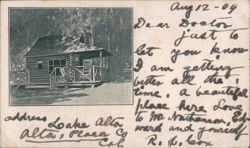 Aug 12-09
Dear Doctor
just to
let you know
I am getting
better all the
time. a beautiful
place here Love
to Mr Nathanson, Ed
ward and yourself
R. L. Cox
address Lake Alta
Alta, Placer Co
Cal